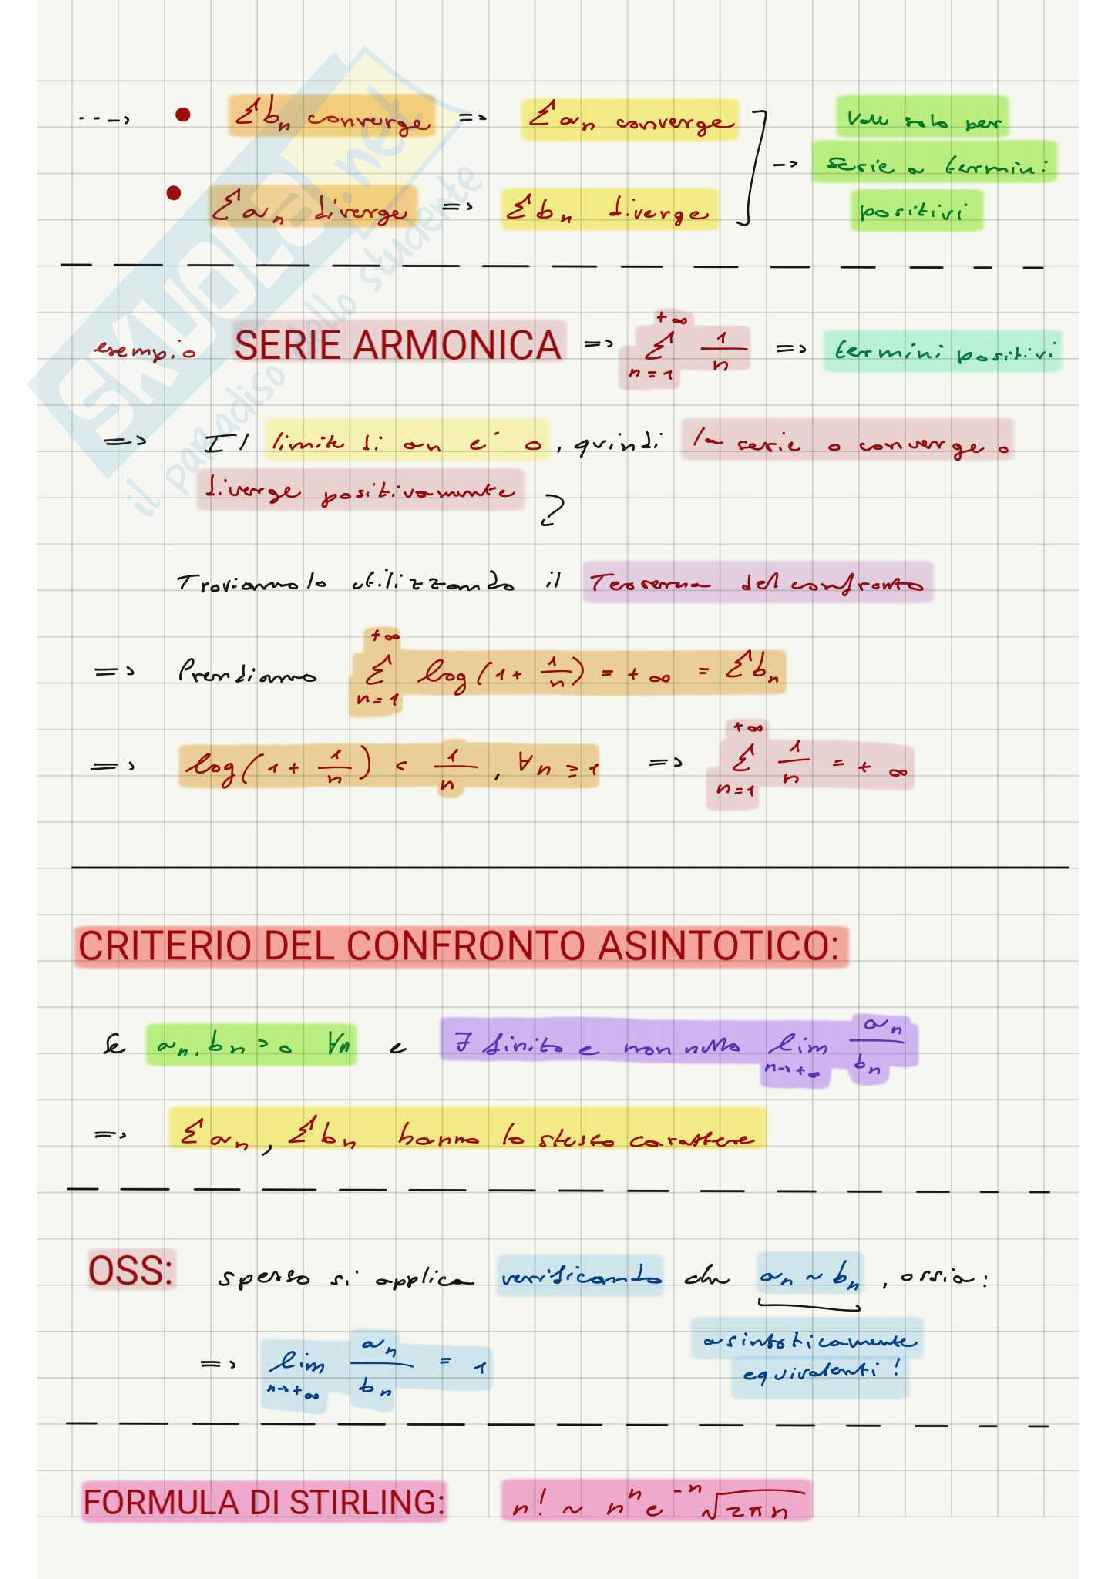 ---> • Σbn converge => Σan converge
• Σan diverge => Σbn diverge
-> Vale solo per
serie a termini
positivi
esempio SERIE ARMONICA => +∞ Σ n=1 1/n => termini positivi
=> Il limite di an e' 0, quindi la serie o converge o
diverge positivamente
Troviamolo utilizzando il Teorema del confronto
=> Prendiamo +∞ Σ n=1 log(1+ 1/n) = +∞ = Σbn
=> log(1+ 1/n) < 1/n, ∀n ≥ 1 => +∞ Σ n=1 1/n = +∞
CRITERIO DEL CONFRONTO ASINTOTICO:
Se an, bn > 0 ∀n e ∃ finito e non nullo lim n->+∞ an/bn
=> Σan, Σbn hanno lo stesso carattere
OSS: spesso si applica verificando che an ~ bn, ossia:
asintoticamente
equivalenti!
=> lim n->+∞ an/bn = 1
FORMULA DI STIRLING: n! ~ nⁿ e⁻ⁿ √2πn
SKUOLA.net
il paradiso dello studente